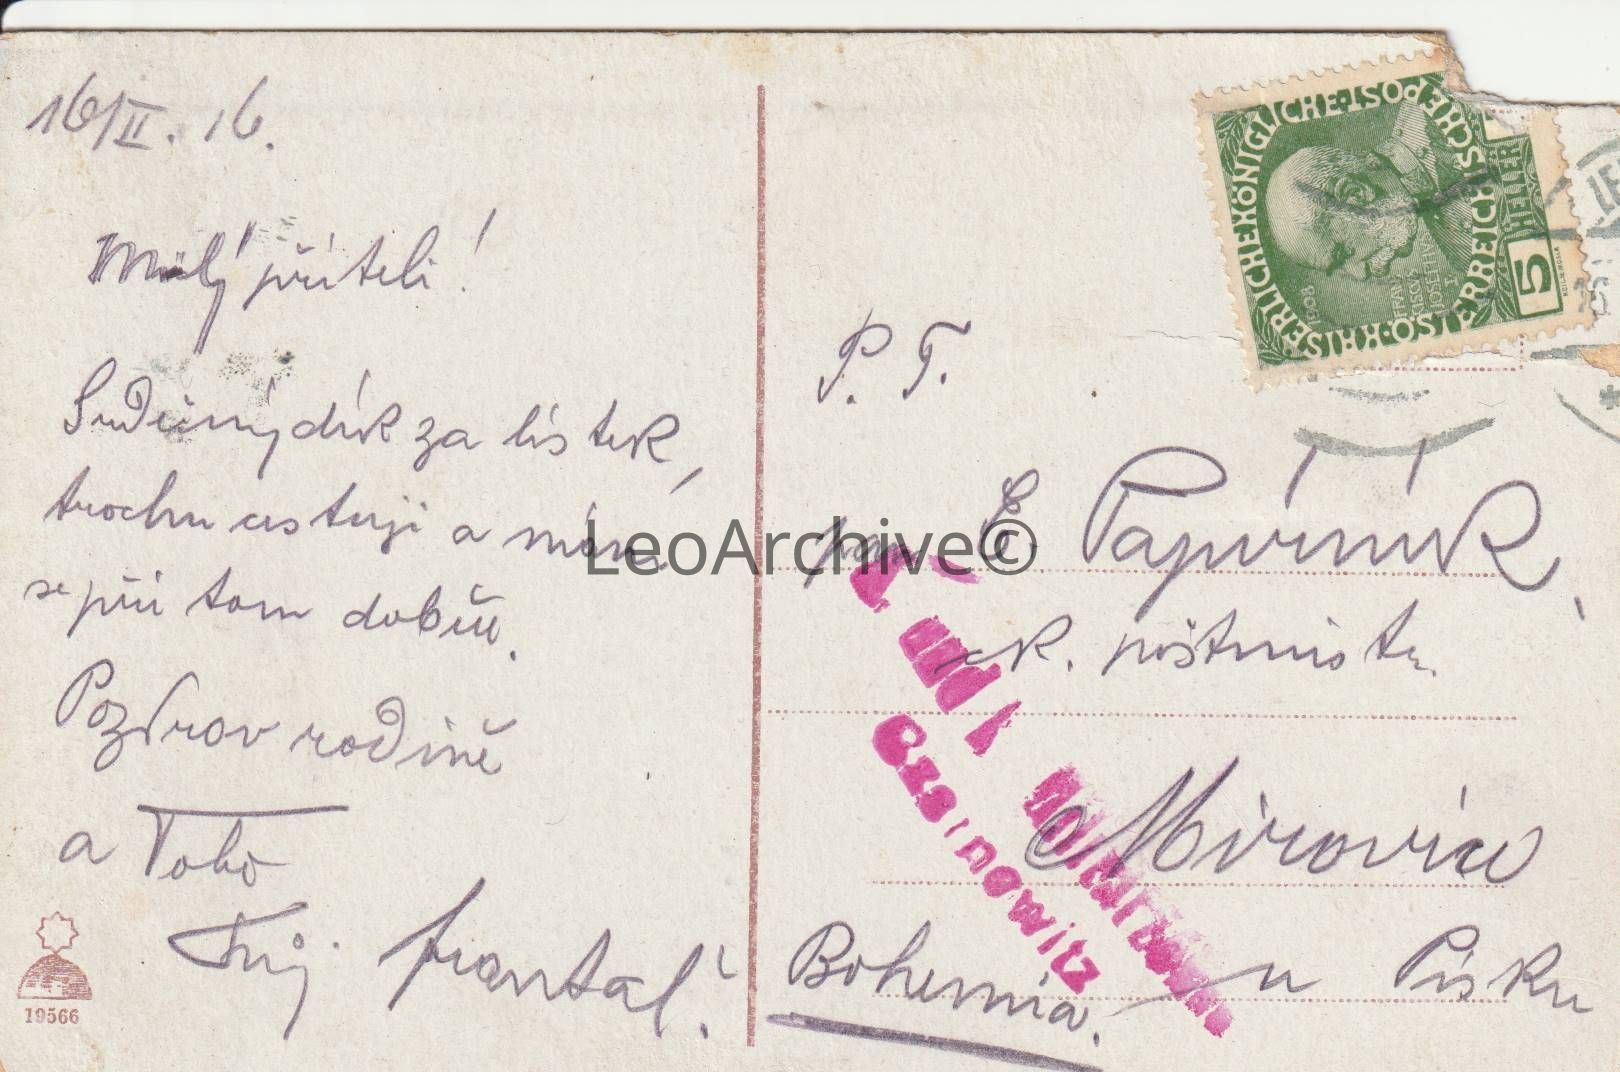 16/II. 16.
Milý příteli!
Srdečný dík za lístek,
trochu cestuji a mám
se při tom dobře.
Pozdrov rodině
a Toho
Tvůj frantal!
19566
KAISERLICHEKÖNIGLICHE·ÖSTERREICHISCHE·POST·
1908
5
HELLER
P. T.
pan E. Papírník,
ck. poštmistr
Mirovice
u Písku
Bohemia.
K und k Militär
Czernowitz
LeoArchive©